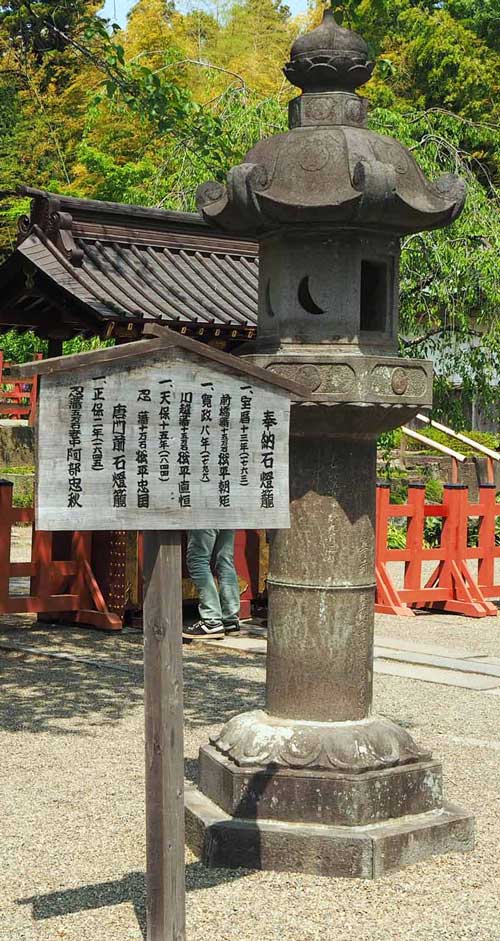 奉納石燈籠
一、宝暦十三年(一七六三)
前橋藩十五万石 松平朝矩
一、寛政八年(一七九六)
川越藩十五万石 松平直恒
一、天保十五年(一八四四)
忍藩十万石 松平忠国
唐門前石燈籠
一、正保二年(一六四五)
忍藩五万石 老中 阿部忠秋